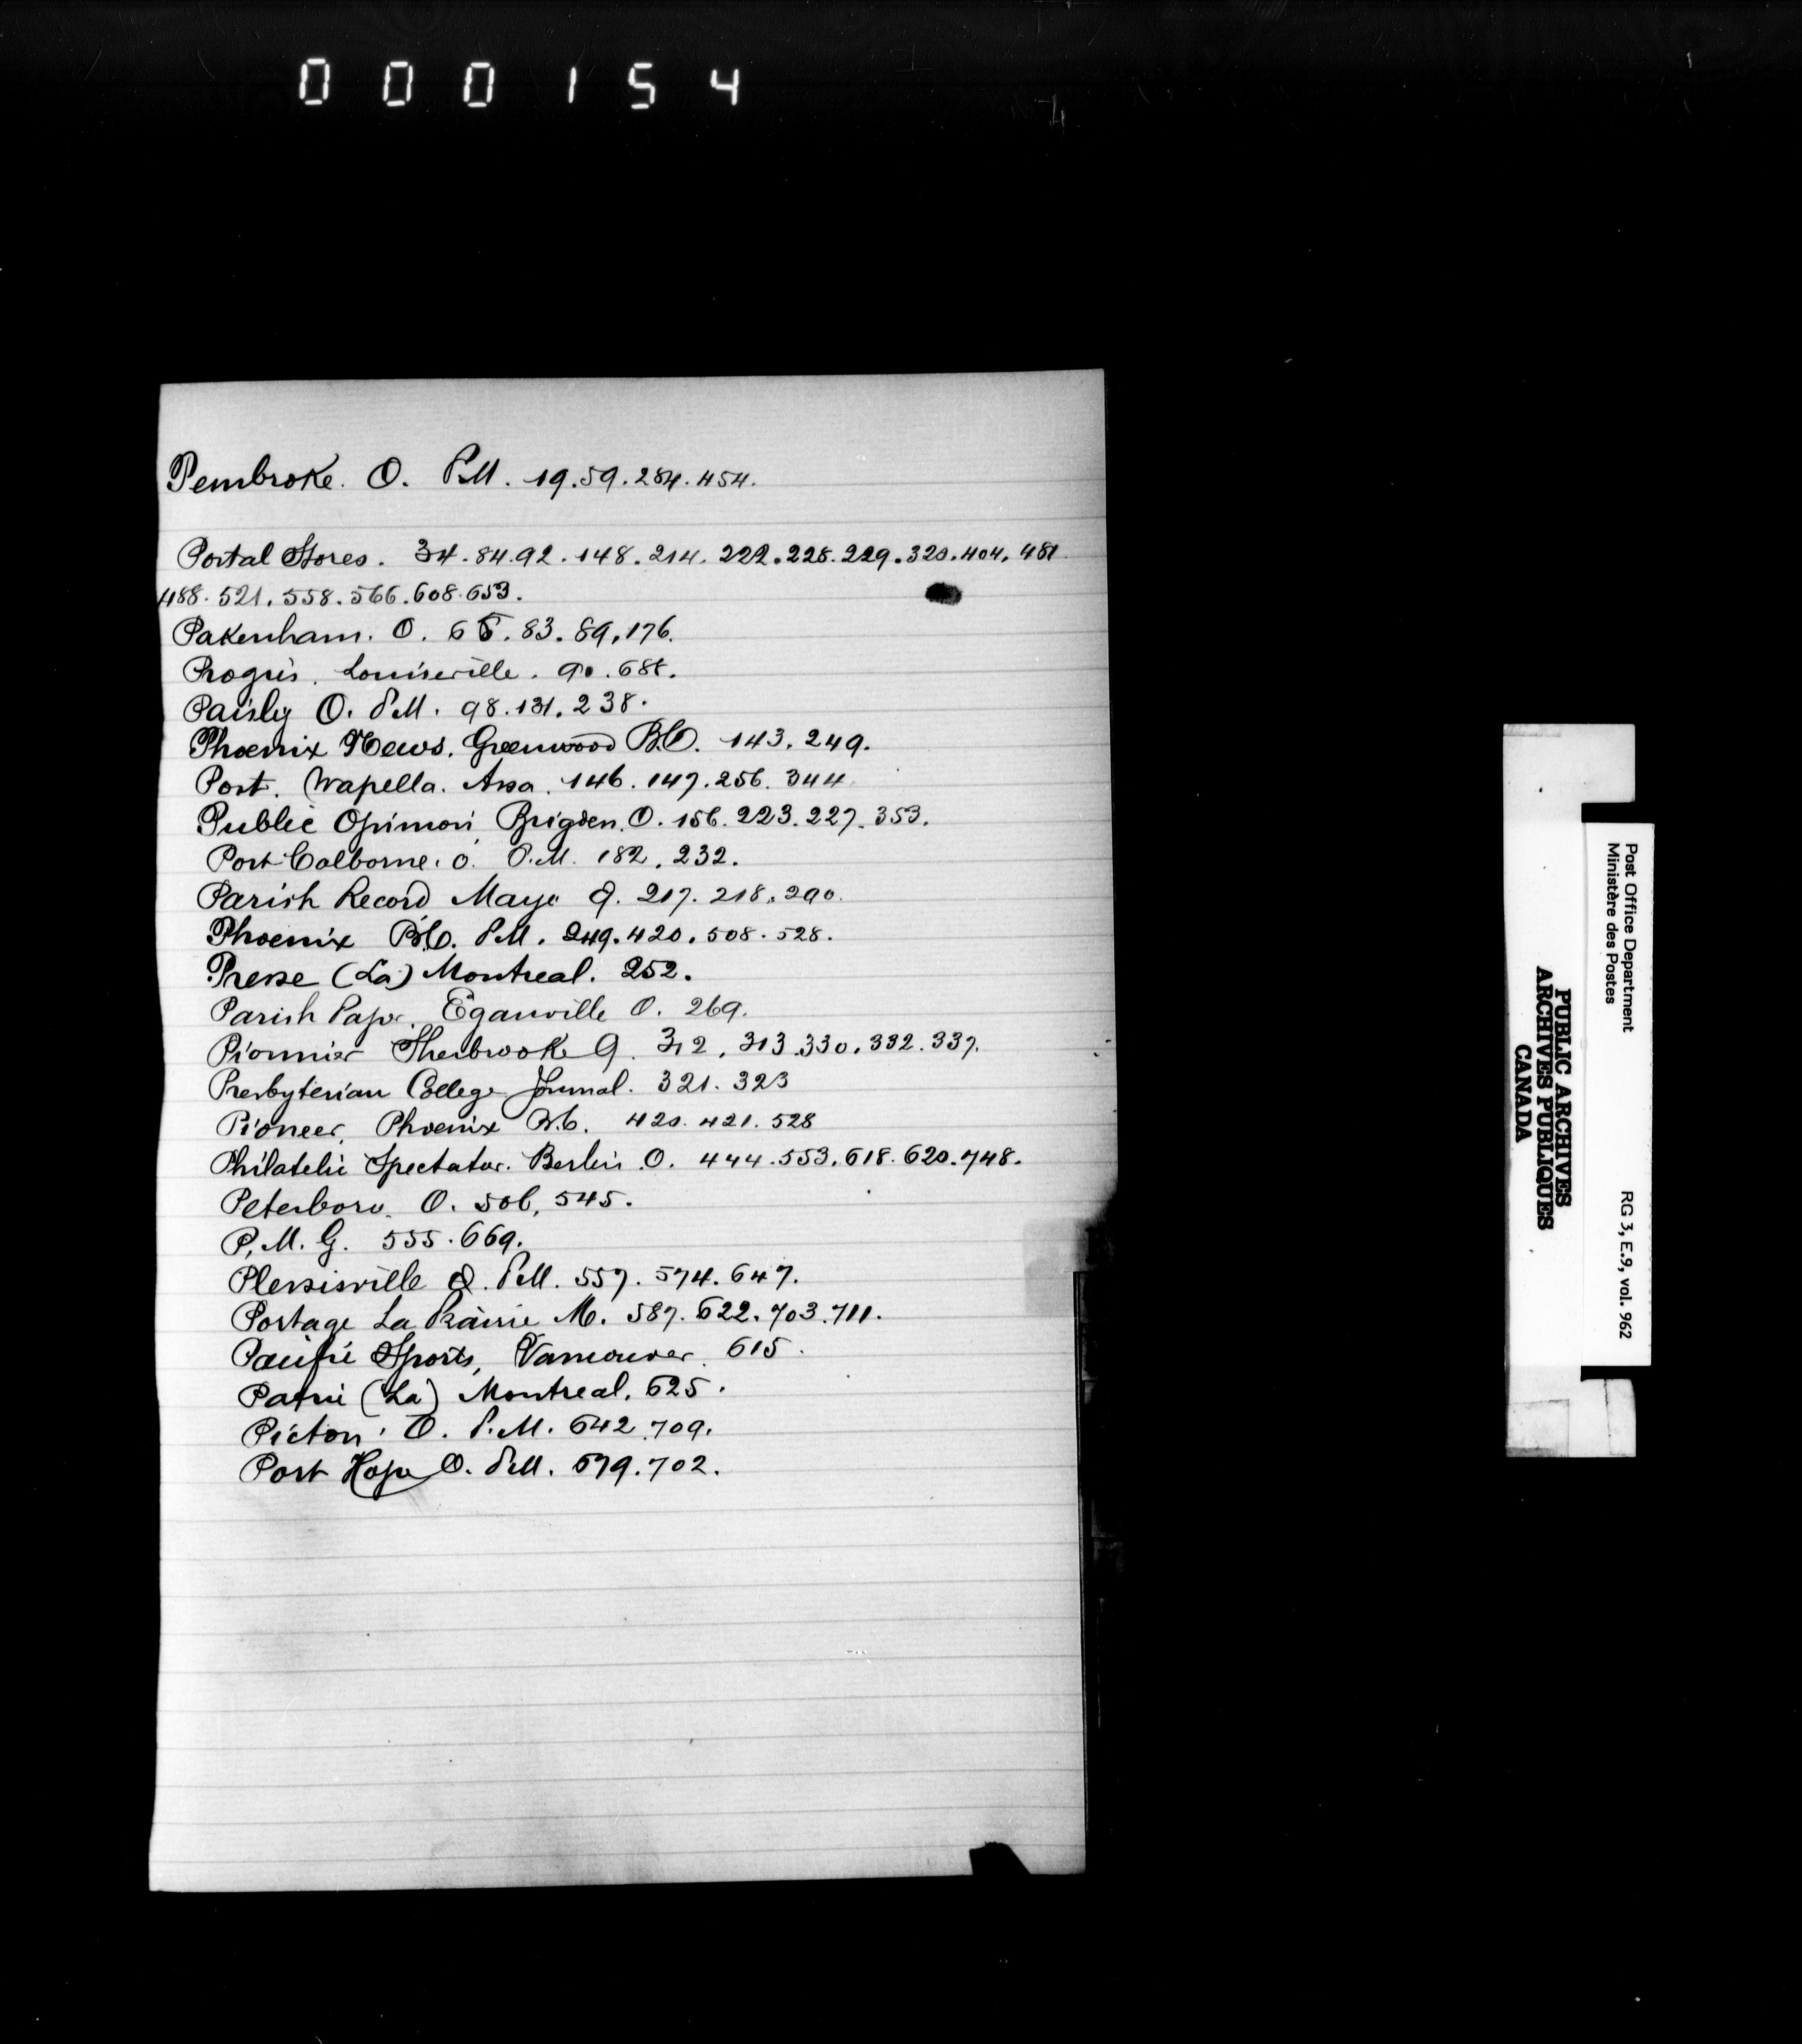 000154
Pembroke. O. P.M. 19.59.284.454.
Postal Stores. 34.84.92.148.214.222.228.229.320.404.481
488.521.558.566.608.653.
Pakenham. O. 65.83.89.176.
Progrès. Louiseville. 90.
Paisly O. P.M. 98.131.238.
Phoenix News. Greenwood B.C. 143.249.
Post. Wapella. Assa. 146.147.256.344
Public Opinion Brigden. O. 156.223.227.353.
Port Colborne. O. P.M. 182.232.
Parish Record Mayo Q. 217.218.290.
Phoenix B.C. P.M. 249.420.508.528.
Presse (La) Montreal. 252.
Parish Paper. Eganville O. 269.
Pionnier Sherbrooke Q. 312.313.330.332.337.
Presbyterian College Journal. 321.323
Pioneer, Phoenix B.C. 420.421.528
Philatelic Spectator. Berlin O. 444.553.618.620.748.
Peterboro. O. 506.545.
P.M.G. 555.669.
Plessisville Q. P.M. 557.574.647.
Portage La Prairie M. 587.622.703.711.
Pacific Sports, Vancouver. 615.
Patrie (La) Montreal. 625.
Picton. O. P.M. 642.709.
Port Hope O. P.M. 679.702.
Post Office Department
Ministère des Postes
RG 3, E.9, vol. 962
PUBLIC ARCHIVES
ARCHIVES PUBLIQUES
CANADA